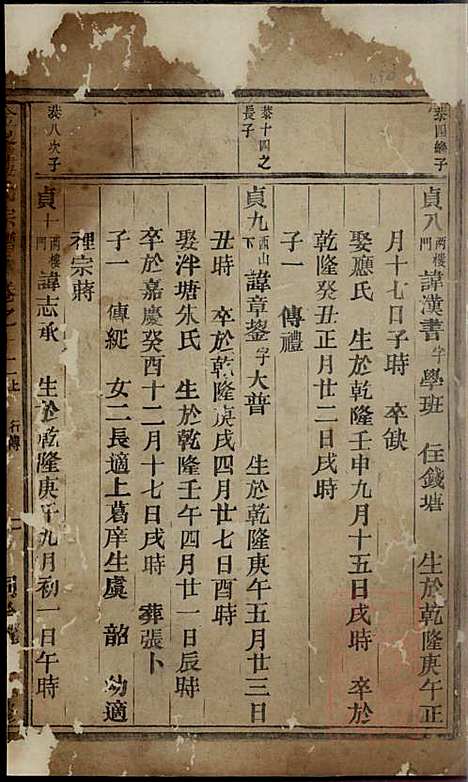 泰四繼子
貞八 兩樓門 諱漢書 字學班 住錢塘 生於乾隆庚午正
月十七日子時 卒缺
娶應氏 生於乾隆壬申九月十五日戌時 卒於
乾隆癸丑正月廿二日戌時
子一 傳禮
泰十四之長子
貞九 西山下 諱章鋆 字大普 生於乾隆庚午五月廿三日
丑時 卒於乾隆庚戌四月廿七日酉時
娶泮塘朱氏 生於乾隆壬午四月廿一日辰時
卒於嘉慶癸酉十二月十七日戌時 葬張卜
子一 傳綎 女二長適上葛庠生虞 韶 幼適
裡宗蔣
泰八次子
貞十 兩樓門 諱志承 生於乾隆庚午九月初一日午時
卷之 上 行傳